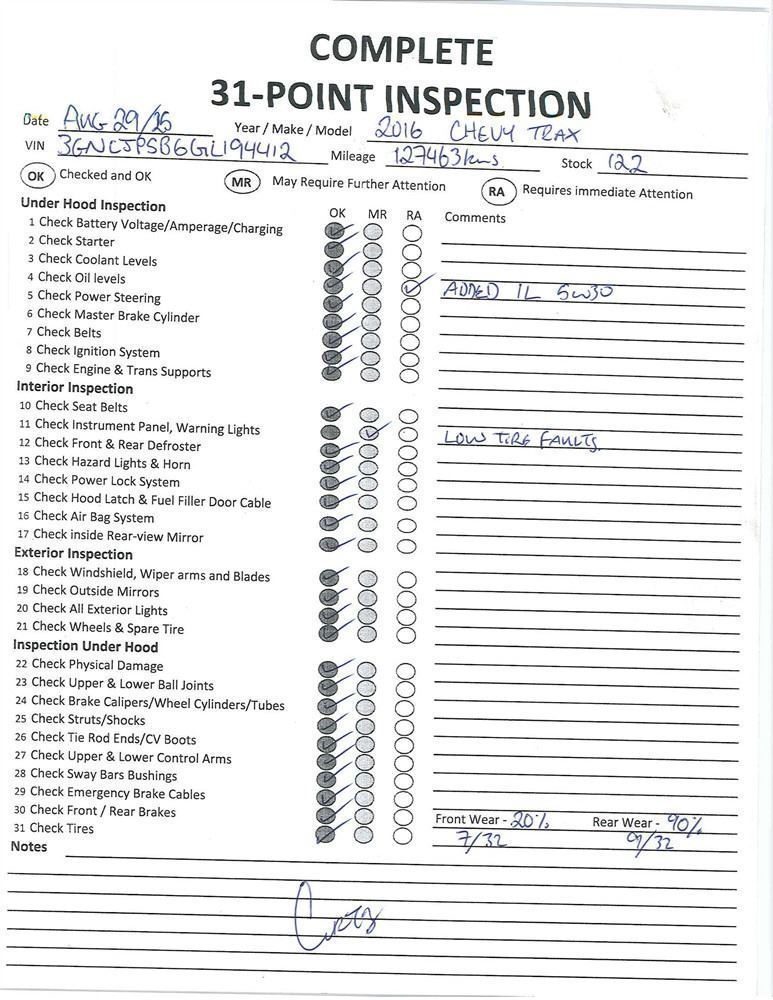 COMPLETE
31-POINT INSPECTION
Date AUG 29/25 Year / Make / Model 2016 CHEVY TRAX
VIN 3GNCJPSB6GL194412 Mileage 127463kms Stock 122
OK Checked and OK MR May Require Further Attention RA Requires immediate Attention
Under Hood Inspection OK MR RA Comments
1 Check Battery Voltage/Amperage/Charging
2 Check Starter
3 Check Coolant Levels
4 Check Oil levels ADDED 1L 5w30
5 Check Power Steering
6 Check Master Brake Cylinder
7 Check Belts
8 Check Ignition System
9 Check Engine & Trans Supports
Interior Inspection
10 Check Seat Belts
11 Check Instrument Panel, Warning Lights LOW TIRE FAULTS.
12 Check Front & Rear Defroster
13 Check Hazard Lights & Horn
14 Check Power Lock System
15 Check Hood Latch & Fuel Filler Door Cable
16 Check Air Bag System
17 Check inside Rear-view Mirror
Exterior Inspection
18 Check Windshield, Wiper arms and Blades
19 Check Outside Mirrors
20 Check All Exterior Lights
21 Check Wheels & Spare Tire
Inspection Under Hood
22 Check Physical Damage
23 Check Upper & Lower Ball Joints
24 Check Brake Calipers/Wheel Cylinders/Tubes
25 Check Struts/Shocks
26 Check Tie Rod Ends/CV Boots
27 Check Upper & Lower Control Arms
28 Check Sway Bars Bushings
29 Check Emergency Brake Cables
30 Check Front / Rear Brakes Front Wear - 20% Rear Wear - 90%
31 Check Tires 7/32 9/32
Notes